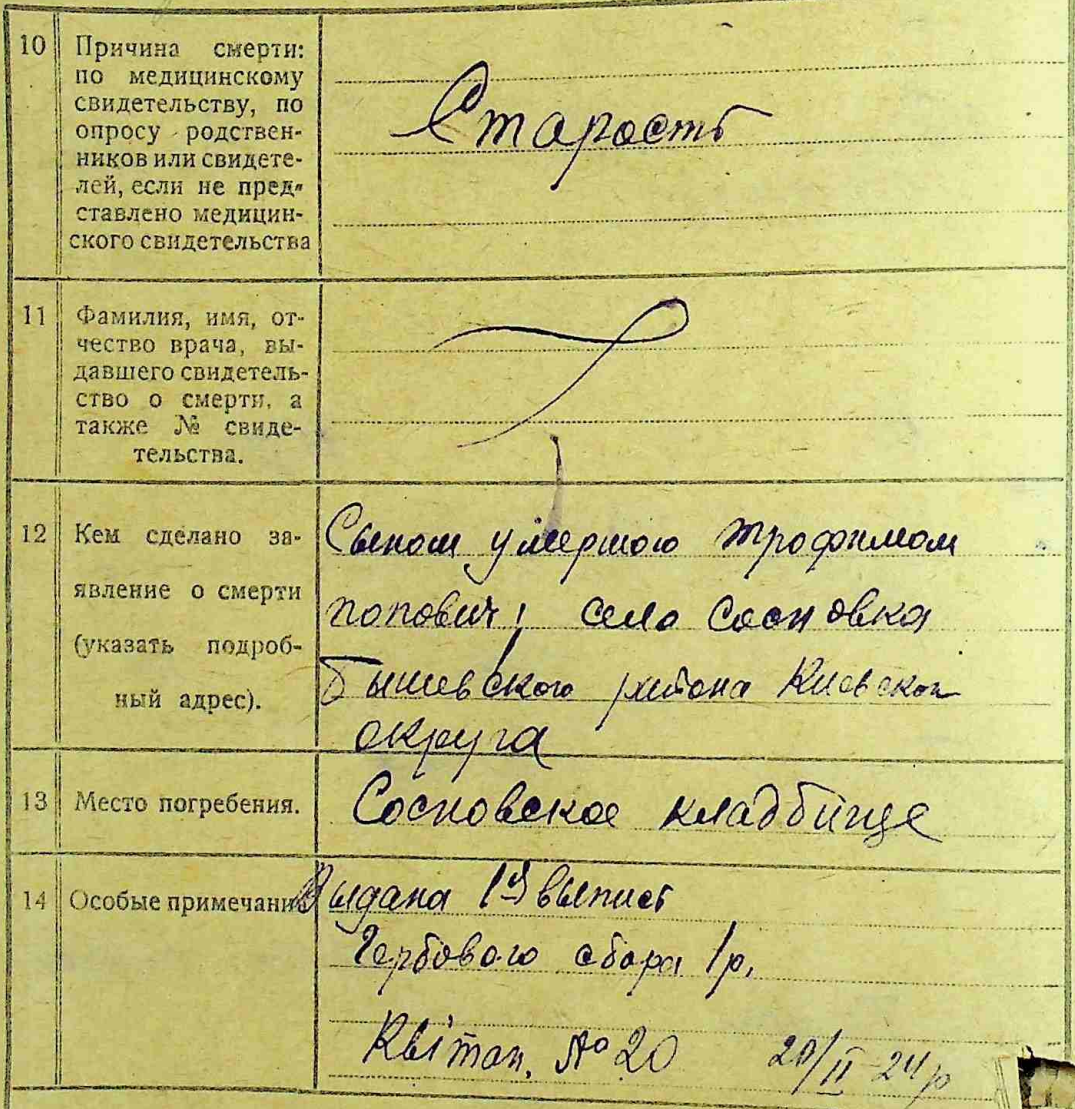 10 Причина смерти:
по медицинскому
свидетельству, по
опросу родствен-
ников или свидете-
лей, если не пред-
ставлено медицин-
ского свидетельства
Старость
11 Фамилия, имя, от-
чество врача, вы-
давшего свидетель-
ство о смерти, а
также № свиде-
тельства.
12 Кем сделано за-
явление о смерти
(указать подроб-
ный адрес).
Сыном умершого трофимом
попович; село Сосновка
Бышевского района Киевской
округа
13 Место погребения.
Сосновское кладбище
14 Особые примечания
Выдана 1й выпись
Гербового сбора 1р.
Квітан. № 20 20/II 24р